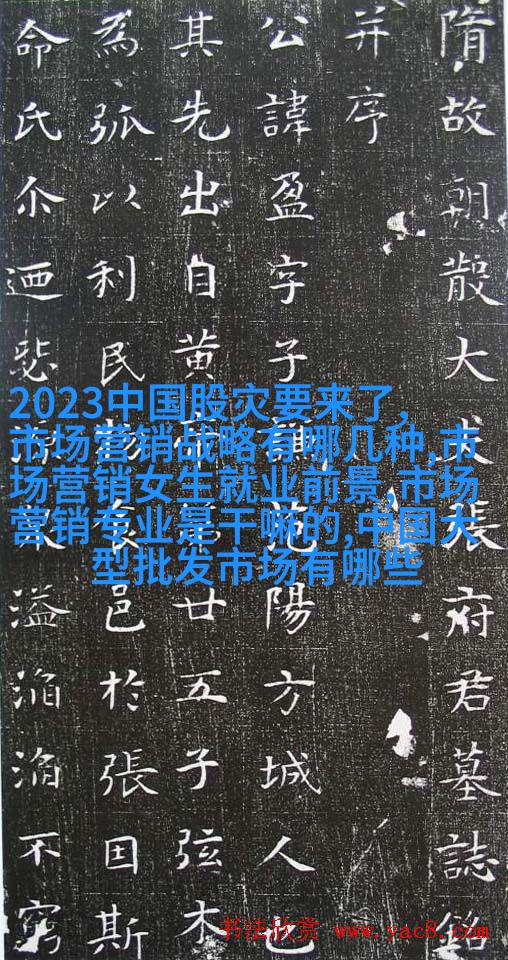 隋故朝散大夫張府君墓誌銘
并序
公諱盈字子范陽方城人也
其先出自黄帝廿五子弦木
為弧以利民食邑於張因斯
命氏尒迺悲溢滔滔不窮
2023中国股灾要来了,
市场营销战略有哪几种,市
场营销女生就业前景,市场
营销专业是干嘛的,中国大
型批发市场有哪些
书法欣赏 www.yac8.com